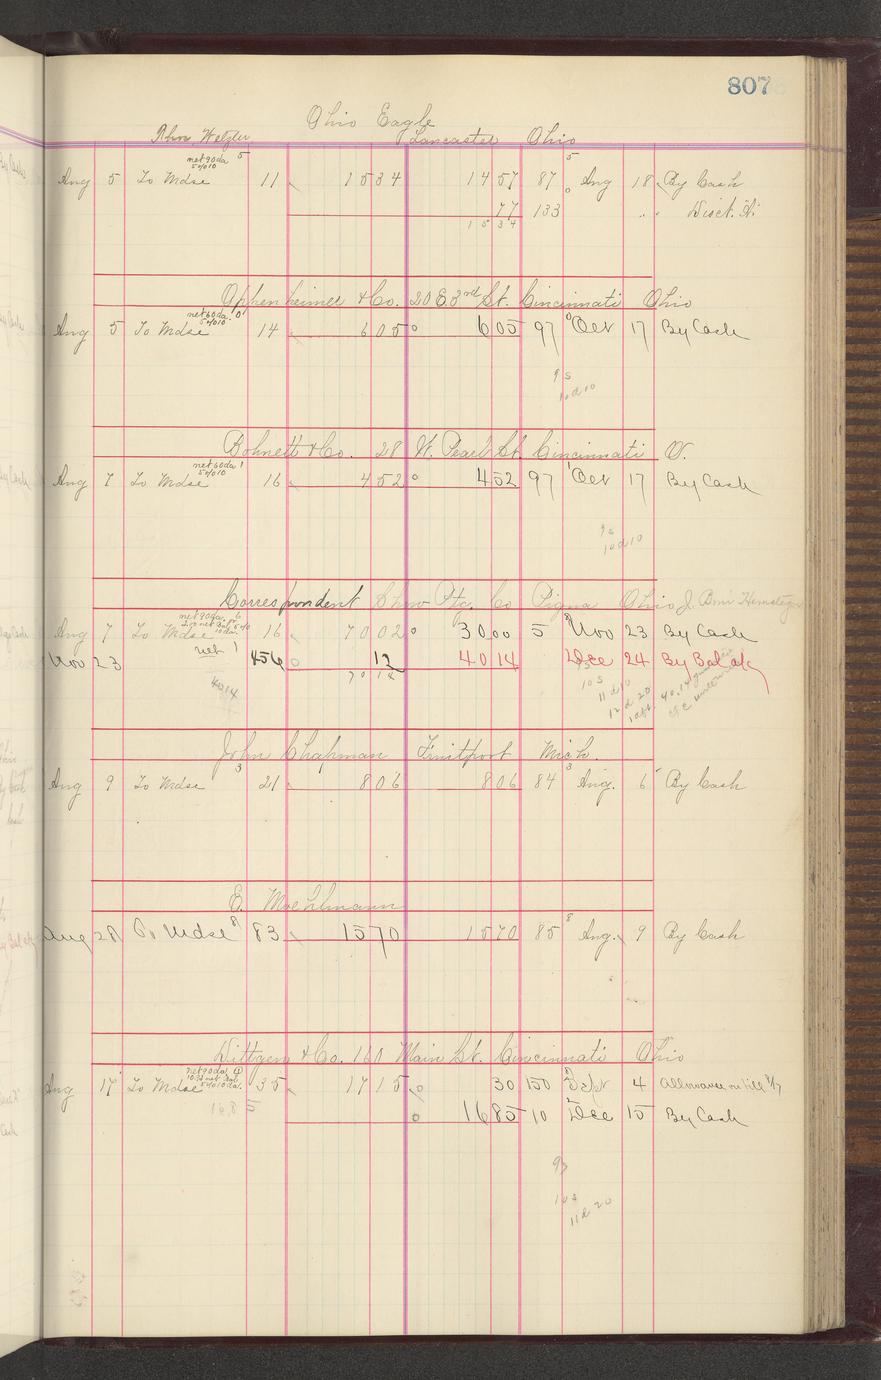 807
Ohio Eagle
Wetzler Lancaster Ohio
net 90 da 5
5%10
Aug 5 To Mdse 11 1534 1457 87 5 Aug 18 By Cash
77 133 " " Disct.
1534
Oppenheimer & Co. 20 E 3rd St. Cincinnati Ohio
net 60 da. 0
5%10
Aug 5 To Mdse 14 605 605 97 0 Oct 17 By Cash
9 s
10 d 10
Bohnett & Co. 28 W. Pearl St. Cincinnati O.
net 60 da 1
5%10
Aug 7 To Mdse 16 452 452 97 1 Oct 17 By Cash
9 s
10 d 10
Correspondent Show Ptg. Co Piqua Ohio J. Boni Hemsteger
net 90 da
Aug 7 To Mdse 16 7002 3000 5 Nov 23 By Cash
Nov 23 net 1 456 12 4014 Dec 24 By Bal
4014 7014
10 s
11 d 10
12 d 20
John Chapman Fruitport Mich.
Aug 9 To Mdse 3 21 806 806 84 3 Aug. 6 By Cash
E. Moehlmann
Aug 28 To Mdse 8 83 1570 1570 85 8 Aug. 9 By Cash
Wittgen & Co. 160 Main St. Cincinnati Ohio
net 90 da
Aug 17 To Mdse 35 1715 30 150 Sept 4 Allowance on bill 8/17
1685 1685 10 2 Dec 15 By Cash
10 s
11 d 20